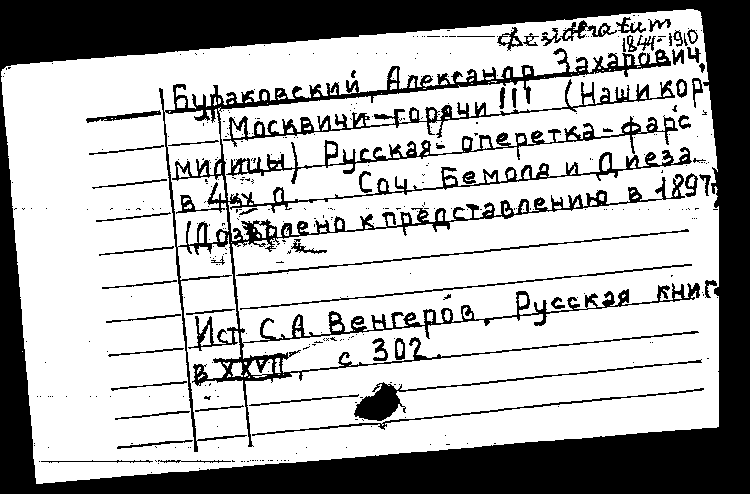 Desideratum
1844-1910
Бураковский, Александр Захарович,
Москвичи-горячи!!! (Наши кор-
милицы). Русская оперетка-фарс
в 4-х д.... Соч. Бемоля и Диеза.
(Дозволено к представлению в 1897
Ист. С.А. Венгеров. Русская книг
в XXVII, с. 302.